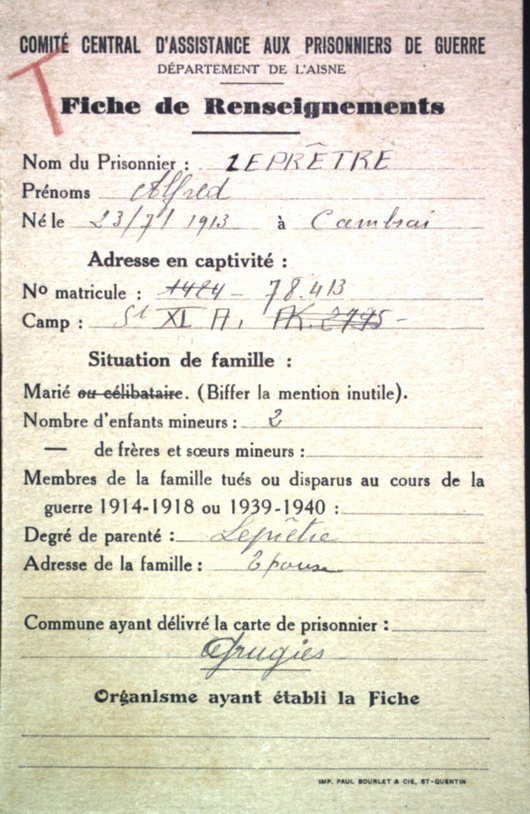 T
COMITÉ CENTRAL D'ASSISTANCE AUX PRISONNIERS DE GUERRE
DÉPARTEMENT DE L'AISNE
Fiche de Renseignements
Nom du Prisonnier : LEPRÊTRE
Prénoms Alfred
Né le 23/7/1913 à Cambrai
Adresse en captivité :
No matricule : 1484 - 78.413
Camp : St XI A,
Situation de famille :
Marié ou célibataire. (Biffer la mention inutile).
Nombre d'enfants mineurs : 2
— de frères et sœurs mineurs :
Membres de la famille tués ou disparus au cours de la
guerre 1914-1918 ou 1939-1940 :
Degré de parenté : Leprêtre
Adresse de la famille : Epouse
Commune ayant délivré la carte de prisonnier :
Grugies
Organisme ayant établi la Fiche
IMP. PAUL BOURLET & CIE, ST-QUENTIN